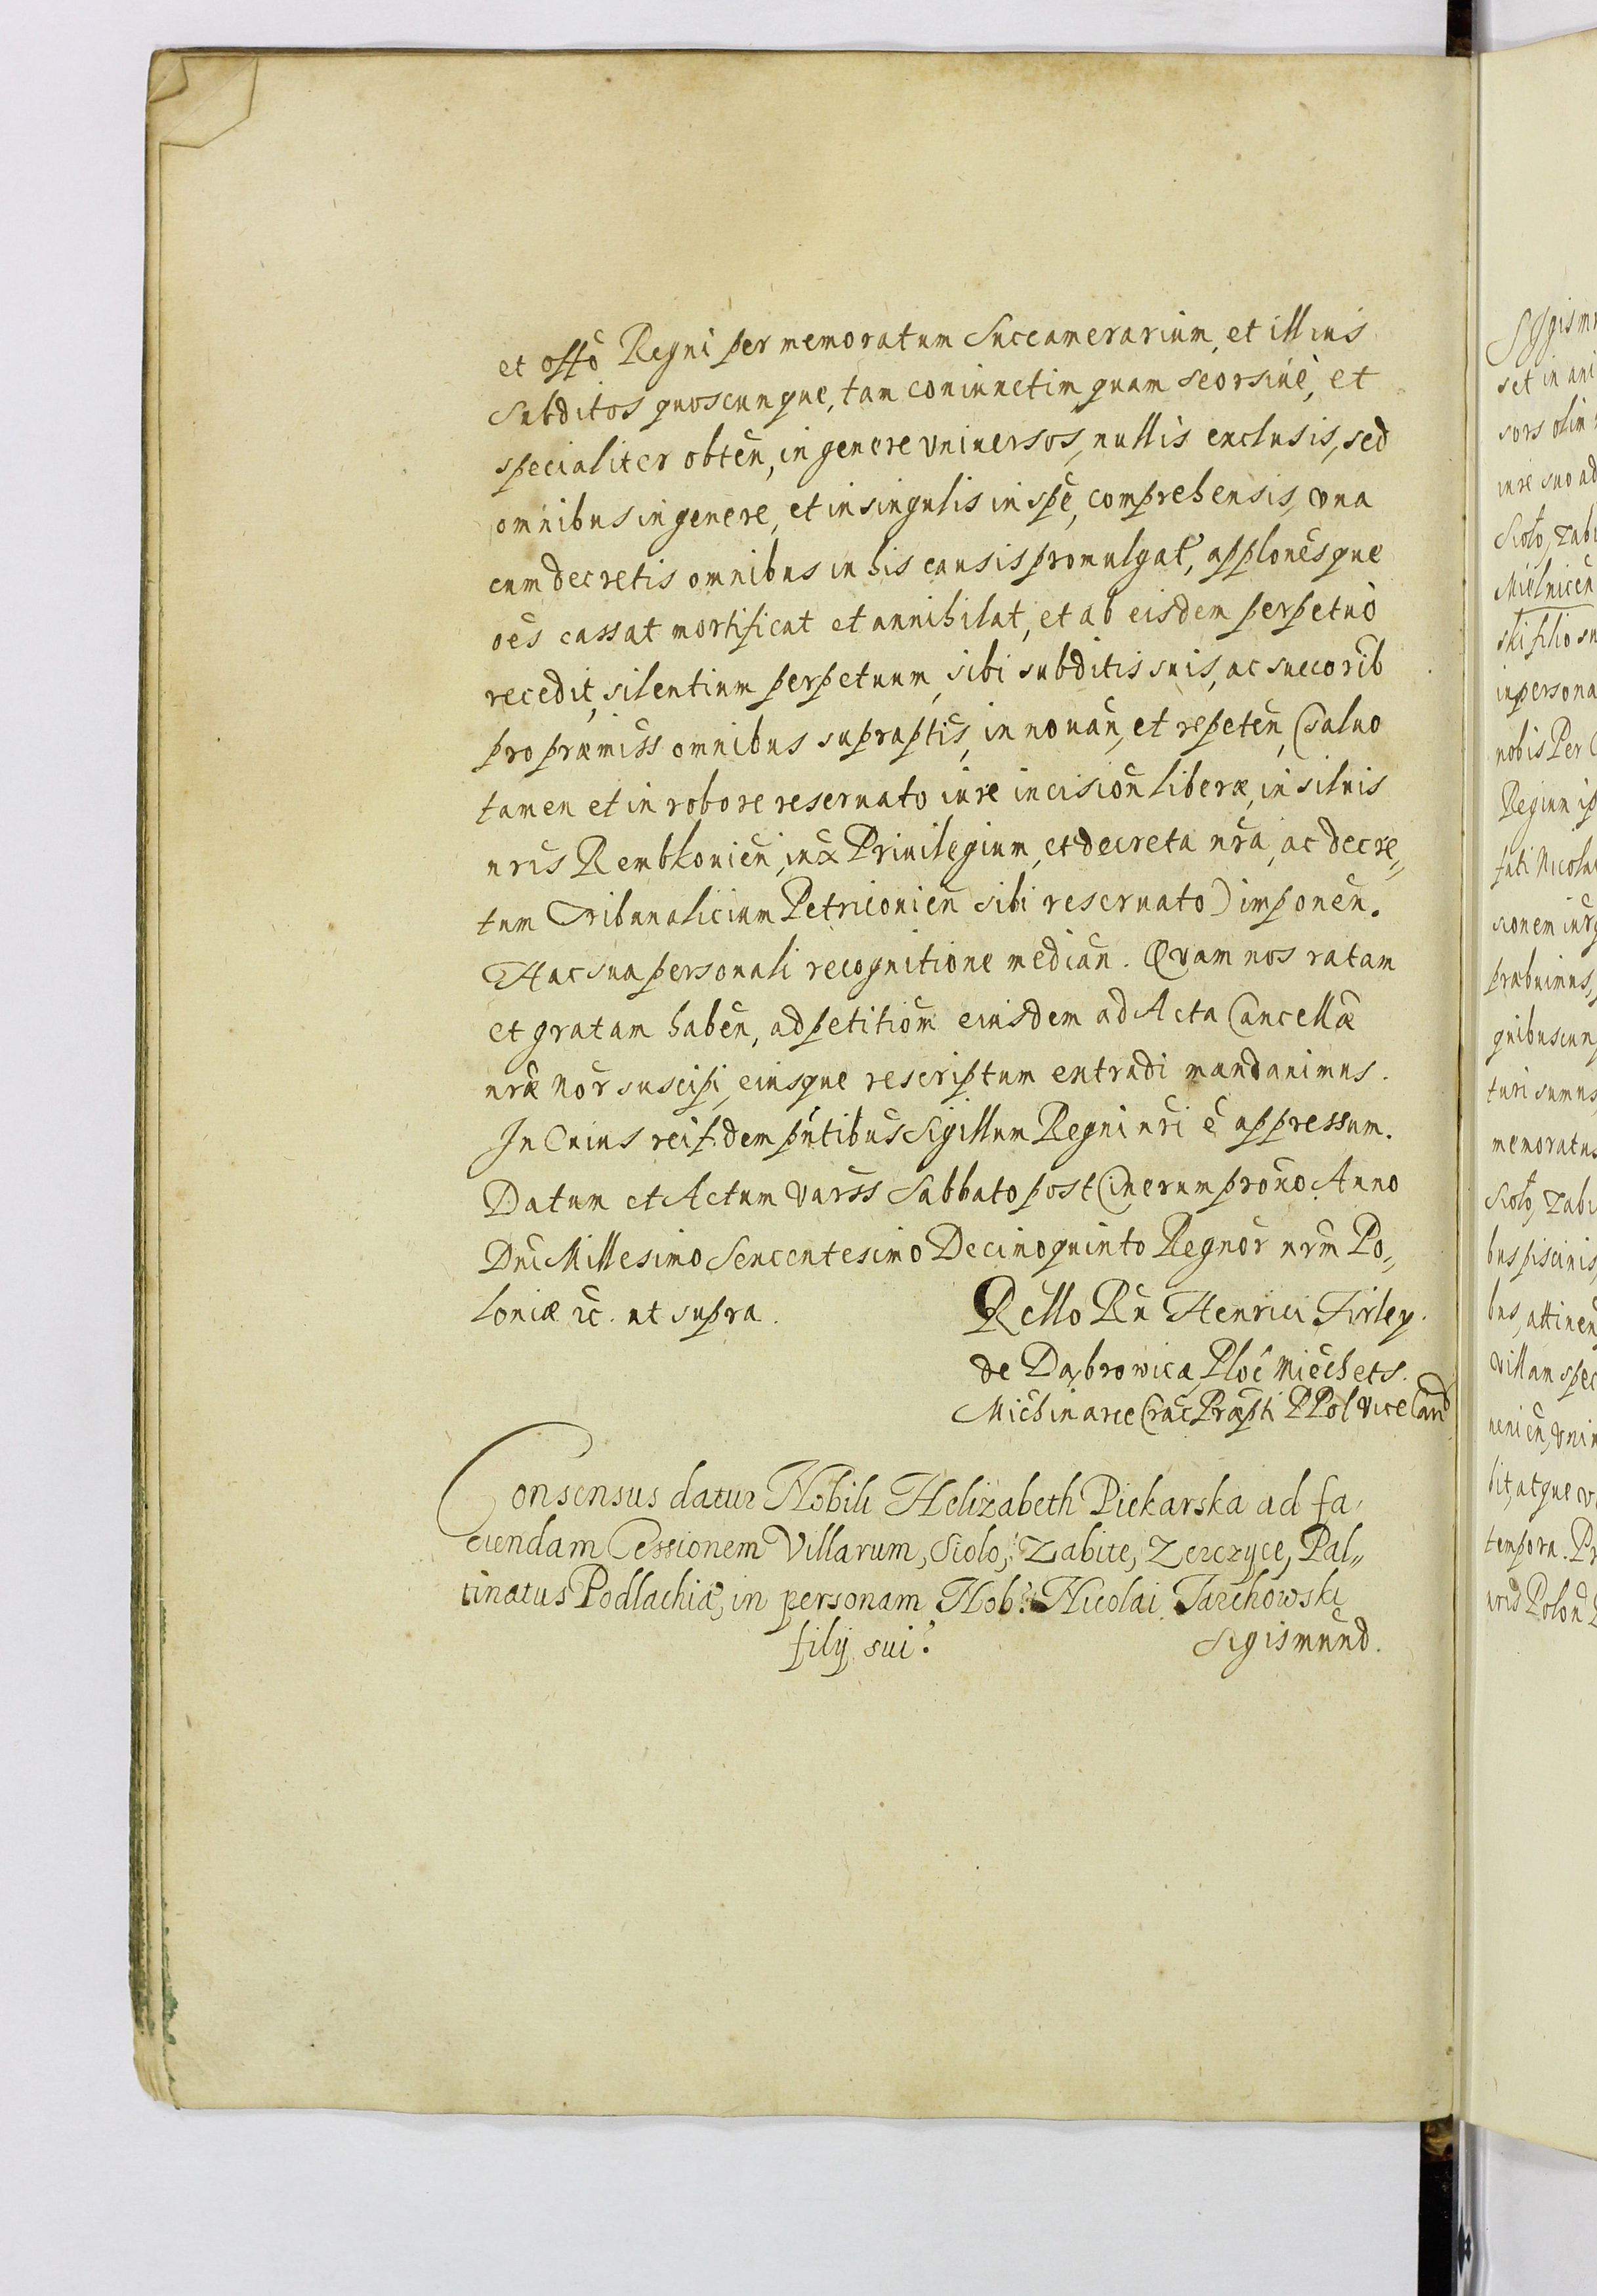 et offo Regni per memoratum Succamerarium, et illius
Subditos quoscunque, tam coniunctim quam seorsiuè, et
specialiter obten̄, in genere vniuersos, nullis exclusis, sed
omnibus in genere, et in singulis in spe, comprehensis, vna
cum decretis omnibus in his causis promulgat, applōnesque
oēs cassat mortificat et annihilat, et ab eisdem perpetuò
recedit, silentium perpetuum, sibi subditis suis, ac succorib
pro præmiss omnibus supraptis, in nouan̄, et repeten̄, (saluo
tamen et in robore reseruato iure incision̄ liberæ, in siluis
nrīs Rembkouien̄, iux Priuilegium, et decreta nrā, ac decre„
tum Tribunalicium Petricouien̄ sibi reseruato) imponen̄.
Hac sua personali recognitione median̄. Qvam nos ratam
et gratam haben̄, ad petitiōm eiusdem ad Acta Cancellæ
nræ nor suscipi, eiusque rescriptum extradi mandauimus.
In Cuius rei fidem pn̄tibus Sigillum Regni nrī ē appressum.
Datum et Actum Varss Sabbato post Cinerum prono Anno
Dnī Millesimo Sexcentesimo Decimoquinto Regnor nrm̄ Po„
loniæ &c. ut supra.
Rello Rn Henrici Firley.
de Dąbrowica, Ploc Miech ets.
Miech in arce Crac Præpti R Pol Vice Canc
Consensus datur Nobili Helizabeth Piekarska ad fa„
ciendam Cessionem Villarum, Sioło, Zabite, Zerczyce, Pal„
tinatus Podlachiæ, in personam Nob: Nicolai Tarchowski
filij sui.
Sigismund.
Sigism
set in ani
sors olim
iure suo ad
Sioło, Zabi
Mielnicen̄
ski filio su
in persona
nobis Per
Regium ip
fati Nicolai
sionem iur
præbuimus,
quibuscunq
turi sumus,
memoratus
Sioło, Zabi
bus piscinis,
bus, attinen
villam spec
neri en̄, vni
bit, atque v
tempora. Pr
nris Polon